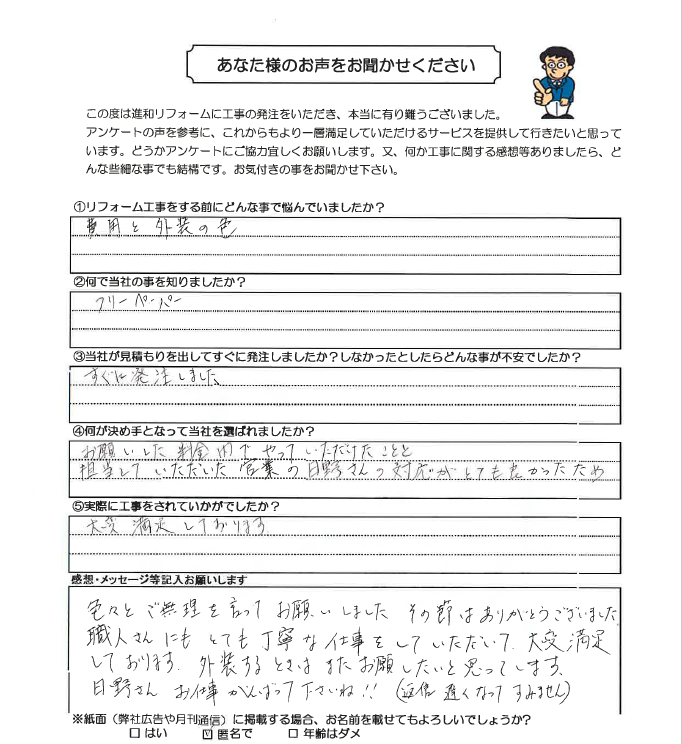 あなた様のお声をお聞かせください
この度は進和リフォームに工事の発注をいただき、本当に有り難うございました。
アンケートの声を参考に、これからもより一層満足していただけるサービスを提供して行きたいと思って
います。どうかアンケートにご協力宜しくお願いします。又、何か工事に関する感想等ありましたら、ど
んな些細な事でも結構です。お気付きの事をお聞かせ下さい。
①リフォーム工事をする前にどんな事で悩んでいましたか？
費用と外装の色
②何で当社の事を知りましたか？
フリーペーパー
③当社が見積もりを出してすぐに発注しましたか？しなかったとしたらどんな事が不安でしたか？
すぐに発注しました
④何が決め手となって当社を選ばれましたか？
お願いした料金内でやっていただけたことと
担当していただいた営業の日野さんの対応がとても良かったため
⑤実際に工事をされていかがでしたか？
大変満足しております
感想・メッセージ等記入お願いします
色々とご無理を言ってお願いしました その節はありがとうございました
職人さんにもとても丁寧な仕事をしていただいて、大変満足
しております。外装するときはまたお願したいと思ってします。
日野さん お仕事がんばって下さいね!! (返信遅くなってすみません)
※紙面（弊社広告や月刊通信）に掲載する場合、お名前を載せてもよろしいでしょうか？
□はい ☑匿名で □年齢はダメ